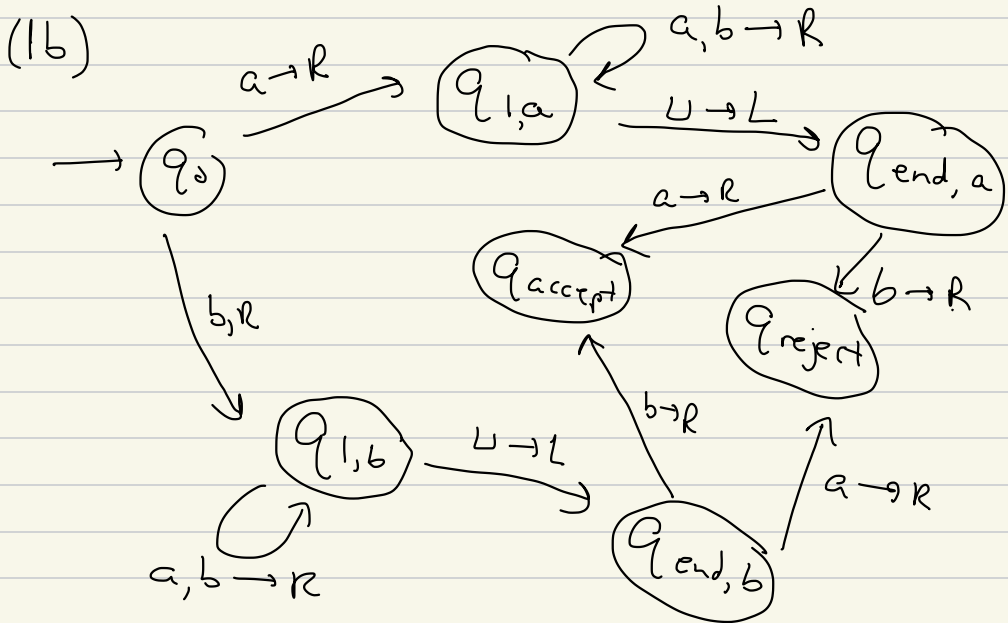 (1b)
a, b → R
a → R
q1,a
⊔ → L
q0
qend, a
a → R
qaccept
b → R
b, R
qreject
b → R
q1,b
⊔ → L
a → R
qend, b
a, b → R